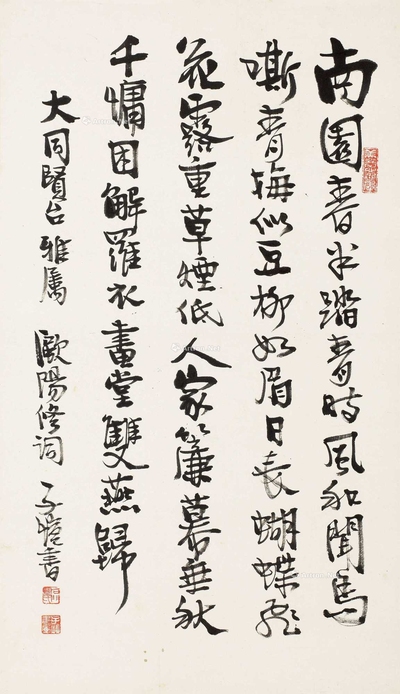 南園春半踏青時風和聞馬
嘶青梅似豆柳如眉日長蝴蝶飛
花露重草煙低人家簾幕垂秋
千慵困解羅衣畫堂雙燕歸
大同賢台雅属 歐陽修詞 子愷書